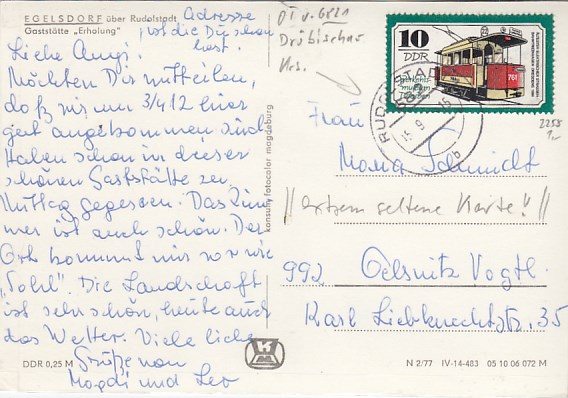 EGELSDORF über Rudolstadt
Gaststätte „Erholung"
Adresse
ist die Du schon
hast.
Liebe Angi!
Möchten Dir mitteilen,
daß wir um 3/4 12 hier
gut angekommen sind.
Haben schon in dieser
schönen Gaststätte zu
Mittag gegessen. Das Zim
mer ist auch schön. Der
Ort kommt mir so vor wie
„Sohl". Die Landschaft
ist sehr schön, heute auch
das Wetter. Viele liebe
Grüße von
Magdi und Leo
DDR 0,25 M
konsum fotocolor magdeburg
OT v. 6821
Dröbischau
Krs.
10
DDR
761
RUDOLSTADT
2258
Frau
Maria Schmidt
//extrem seltene Karte!!//
992 Oelsnitz Vogtl.
Karl Liebknechtstr. 35
N 2/77 IV-14-483 05 10 06 072 M